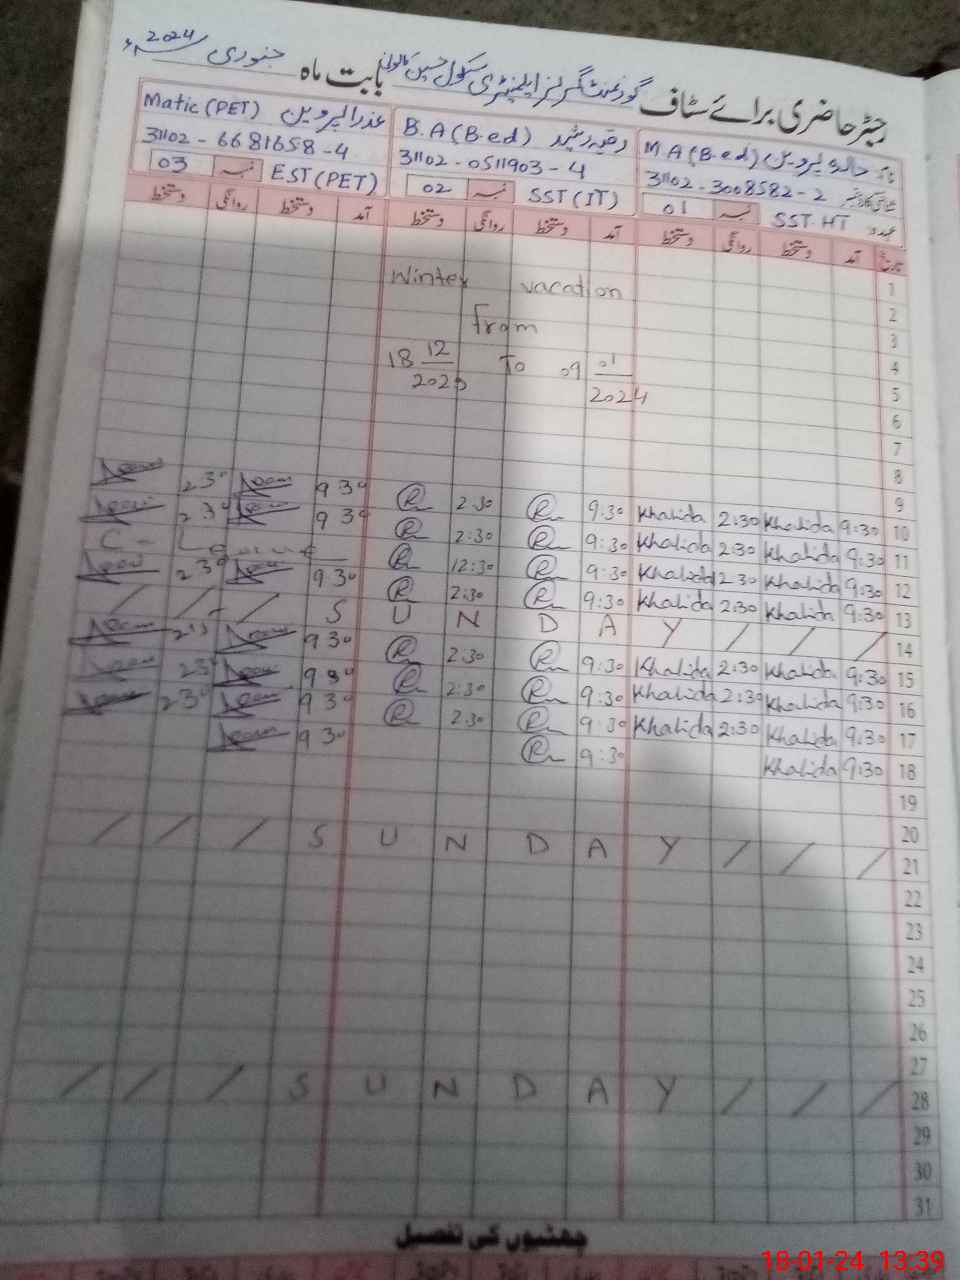 رجسٹر حاضری برائے سٹاف گورنمنٹ گرلز ایلیمنٹری سکول حسین بابت ماہ جنوری 2024ء
نام خالدہ پروین M.A (B.ed) رقیہ رشید B.A (B.ed) عذرا پروین Matic (PET)
31102-3008582-2 31102-0511903-4 31102-6681658-4
عہدہ SST-HT نمبر 01 SST (IT) نمبر 02 EST (PET) نمبر 03
تاریخ آمد دستخط روانگی دستخط آمد دستخط روانگی دستخط آمد دستخط روانگی دستخط
1
Winter vacation
2
From
3
18 12/2023 To 09 01/2024
4
5
6
7
8
9
10 9:30 Khalida 2:30 Khalida 9:30 2:30 9 30 2 30
11 9:30 Khalida 2:30 Khalida 9:30 2:30 9 30 2 30
12 9:30 Khalida 2 30 Khalida 9:30 12:30 C - Leave
13 9:30 Khalida 2:30 Khalida 9:30 2:30 9 30 2 30
14 / / / S U N D A Y / / /
15 9:30 Khalida 2:30 Khalida 9:30 2:30 9 30 2 3
16 9:30 Khalida 2:30 Khalida 9:30 2:30 9 30 2 3
17 9:30 Khalida 2:30 Khalida 9:30 2:30 9 30 2 30
18 9:30 Khalida 9:30 9 30
19
20
21 / / / S U N D A Y / / /
22
23
24
25
26
27
28 / / / S U N D A Y / / /
29
30
31
چھٹیوں کی تفصیل
18-01-24 13:39